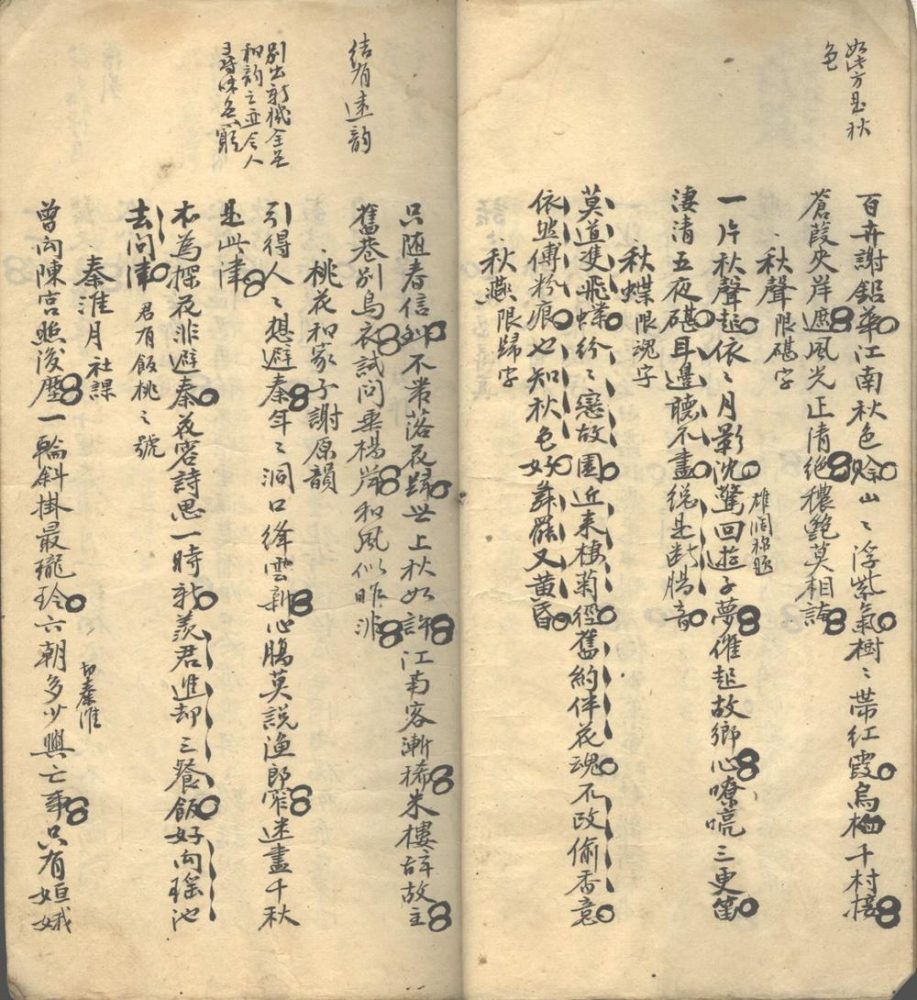 如此方是秋
色
百卉謝鉛華江南秋色賒山〻浮紫氣樹〻帶紅霞烏桕千村接
蒼葭夾岸遮風光正清絕穠艷莫相誇
秋聲限砧字
一片秋聲起依〻月影沈驚回遊子夢催起故鄉心嘹喨三更笛
淒清五夜砧耳邊聽不盡總是斷腸音
秋蝶限魂字
莫道雙飛蝶紛〻戀故園近來棲菊徑舊約伴花魂不改偷香意
依然傅粉痕也知秋色好舞罷又黃昏
秋燕限歸字
結有遠韻
只随春信到不帶落花歸世上秋如許江南客漸稀朱樓辞故主
舊巷別烏衣試問垂楊岸和風似昨非
桃花和家子謝原韻
別出新機全是
和韻之並令人
尋味無窮
引得人〻想避秦年〻洞口絳雲新心腸莫説漁郎窄迷盡千秋
是此津
本為探花非避秦花容詩思一時新羨君進却三餐飯好向瑶池
去问津 君有飯桃之號
秦淮月 社課
切秦淮
曾向陳宮照後塵一輪斜掛最瓏玲六朝多少興亡事只有姮娥